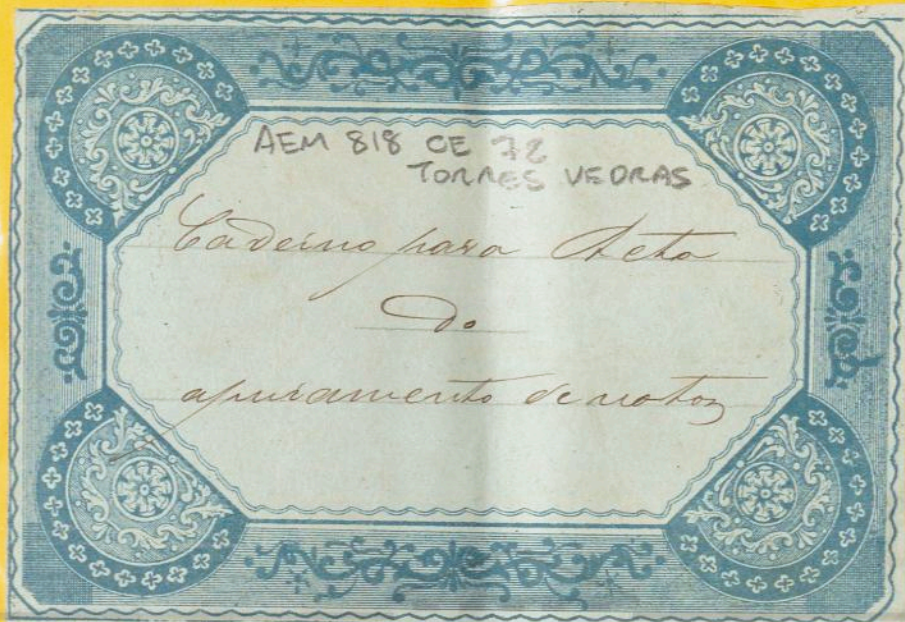 AEM 818 CE 78
TORRES VEDRAS
Caderno para Acta
do
apuramento de votos